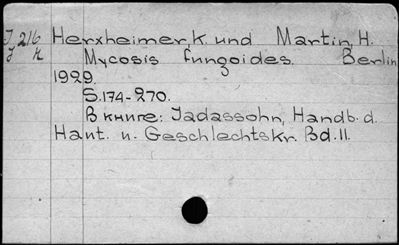 J 216 Herxheimer, K. und Martin, H.
J k Mycosis fungoides. Berlin
1929.
S. 174-270.
В книге: Jadassohn, Handb. d.
Haut. u. Geschlechtskr. Bd. 11.